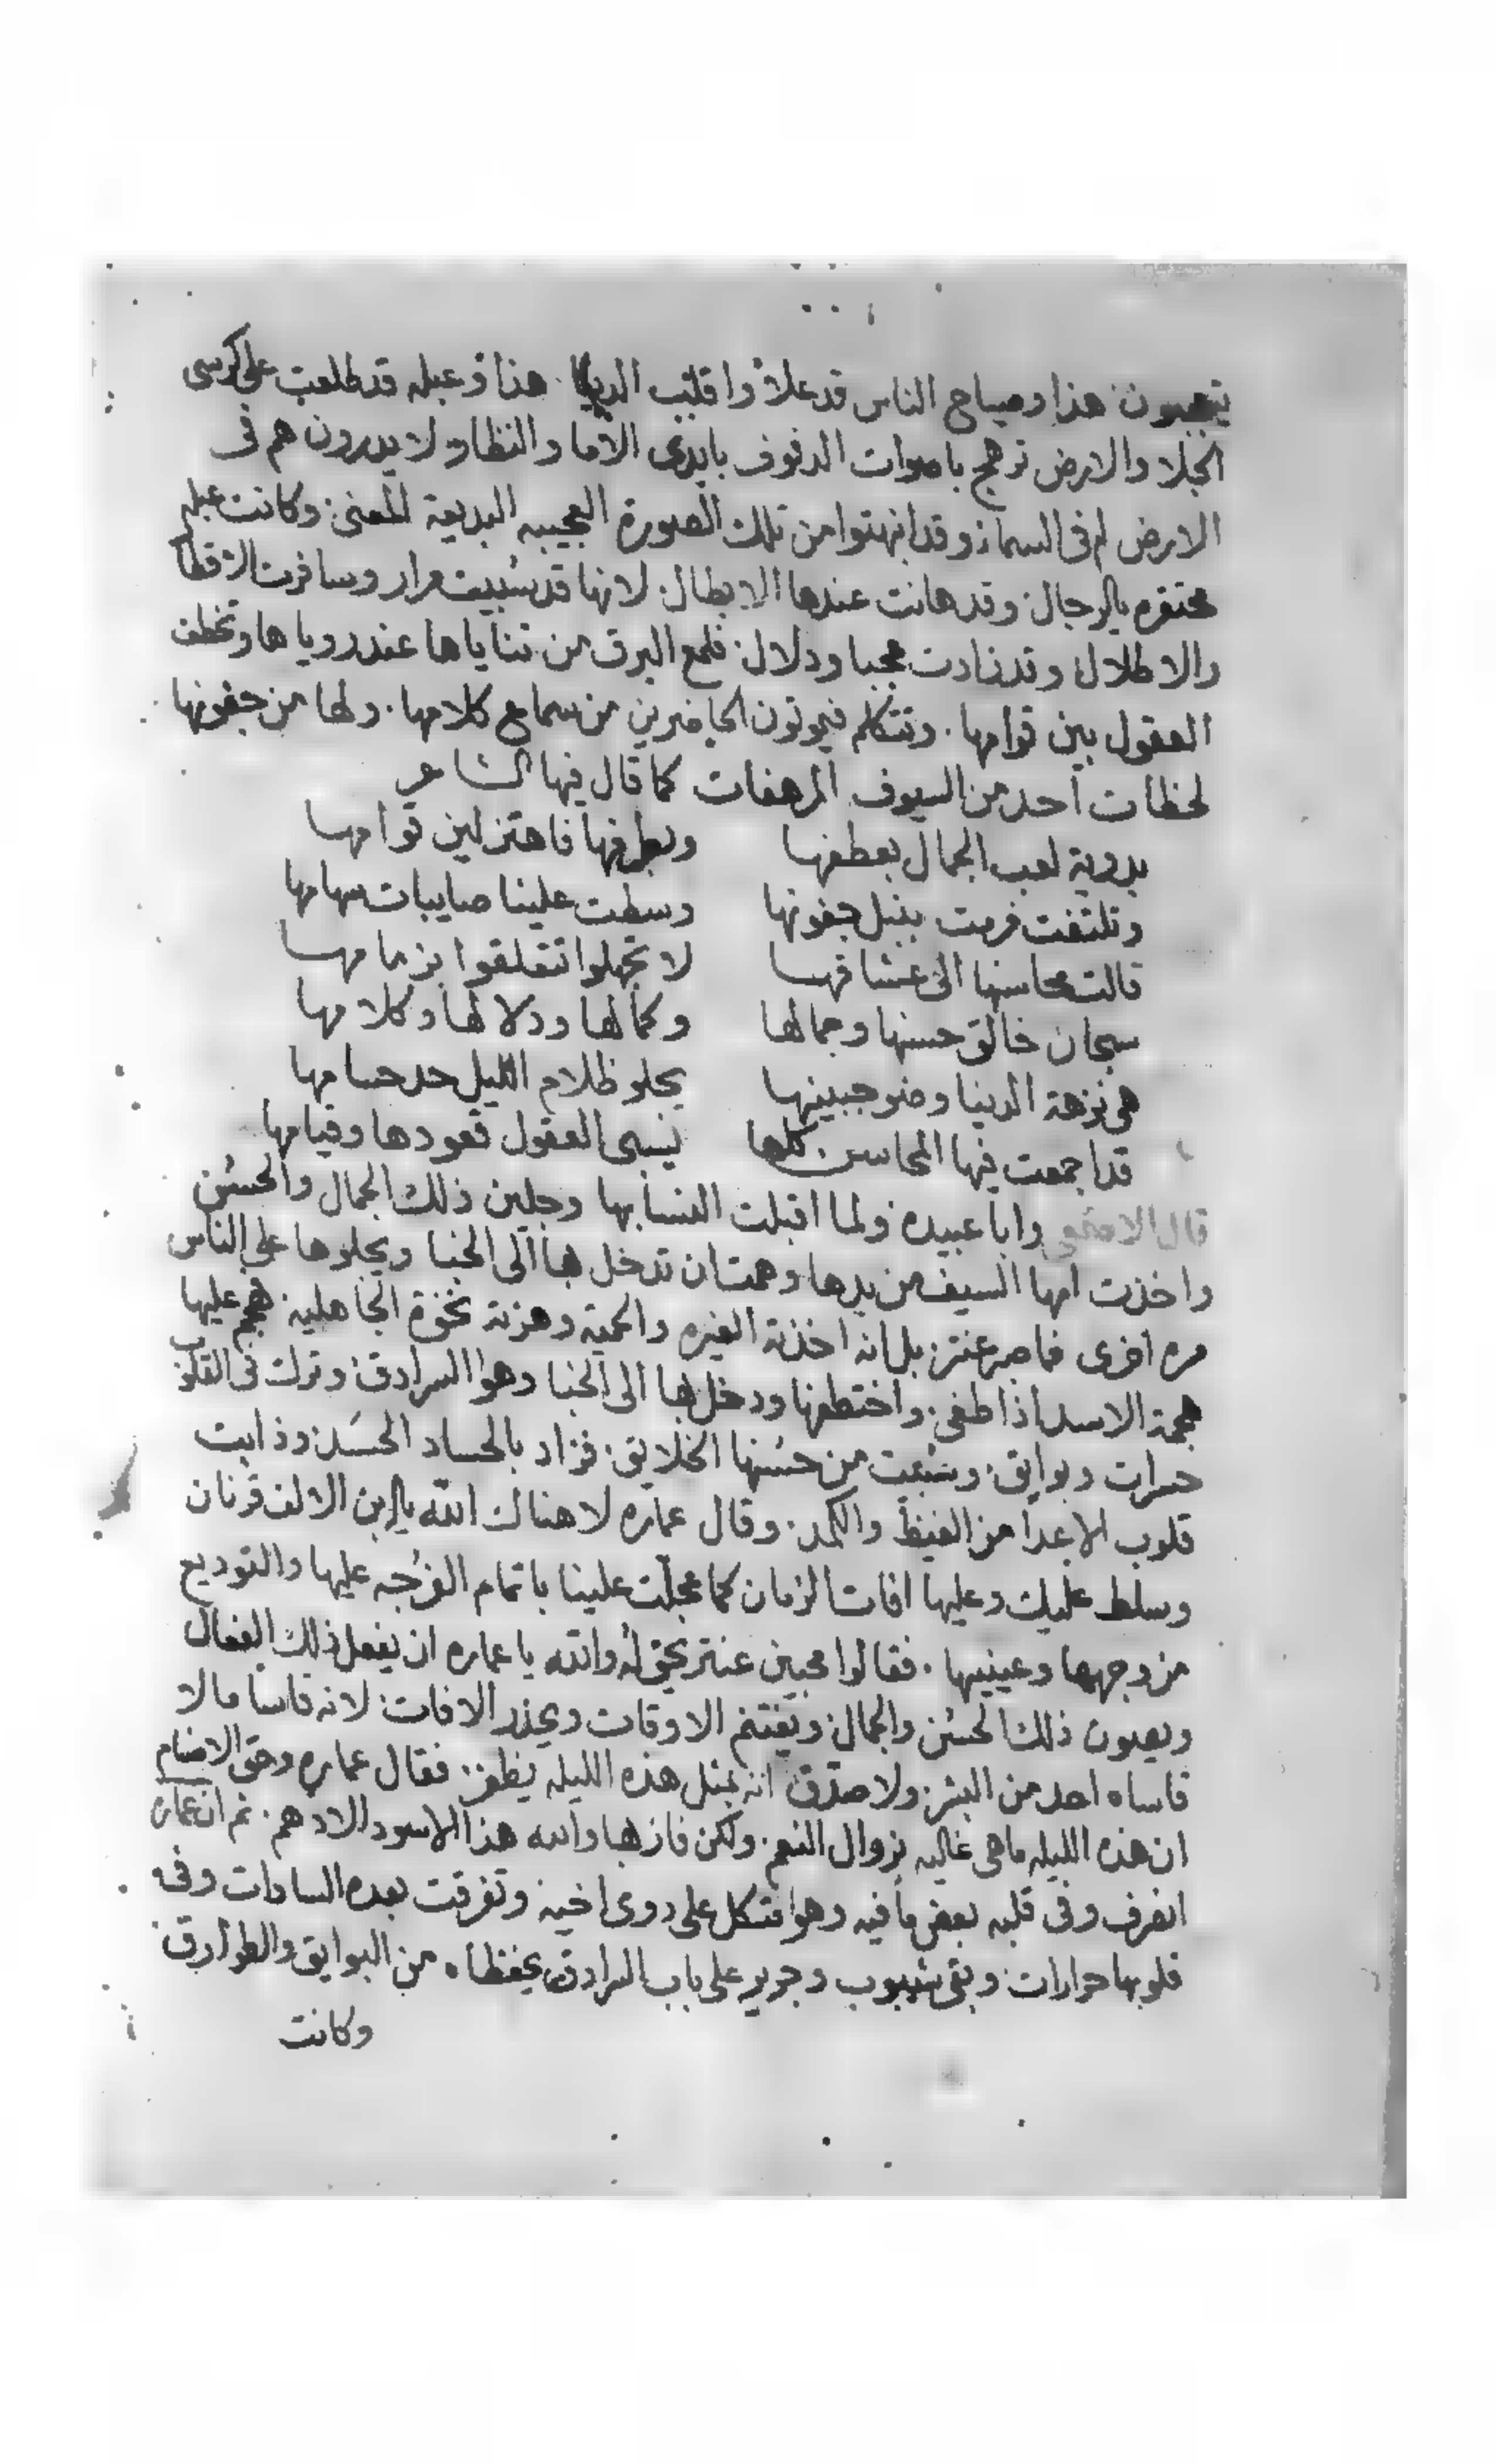 يتعجبون هذا وصياح الناس قد علا واقلبت الدنيا هذا وعبله قد طلعت على كرسي
الجلا والارض ترهج باصوات الدفوف بايدي الاما والنظار ولا يدرون هم في
الارض ام في السما وقد انبهتوا من تلك الصورة العجيبه البديعة المعنى وكانت عبله
محتقره بالرجال وقد هانت عندها الابطال لانها قد سبيت مرار وسافرت الاقطار
والاطلال وقد زادت عجبا ودلال فلمع البرق من ثناياها عند روياها وتخطف
العقول بين قوامها وتتكلم فيموتون الحاضرين من سماع كلامها ولها من جفونها
لحظات احد من السيوف المرهفات كما قال فيها الشاعر
بدوية لعب الجمال بعطفها وبطرفها فاهتز لين قوامها
وتلتفت فرمت بنبل جفونها وسطت علينا صايبات سهامها
قالت محاسنها الى عشاقها لا تجهلوا تتعلقوا بزمامها
سبحان خالق حسنها وجمالها وكمالها ودلالها وكلامها
هي نزهة الدنيا وضو جبينها يجلو ظلام الليل حد حسامها
قد اجمعت فيها المحاسن كلها تسبى العقول قعودها وقيامها
قال الاصمعي وابا عبيده ولما اقبلت النسا بها وجلين ذلك الجمال والحسن
واخذت امها السيف من يدها وهمت ان تدخل بها الى الخبا ويجلوها على الناس
مره اخرى فما صبر عنتر بل انه اخذته الغيره والحمية وهزته نخوة الجاهليه هجم عليها
هجمة الاسد اذا طغى واختطفها ودخل بها الى الخبا وهو السرادق وترك في القلوب
حسرات وبوايق وشبعت من حسنها الخلايق فزاد بالحساد الحسد وذابت
قلوب الاعدا من الغيظ والكمد وقال عماره لا هناك الله يابن الالف قرنان
وسلط عليك وعليها افات الزمان كما عجلت علينا باتمام الفرجه عليها والتوديع
من وجهها وعينيها فقالوا محبين عنتر يحق له والله يا عماره ان يفعل ذلك الفعال
ويصون ذلك الحسن والجمال ويغتنم الاوقات ويحذر الافات لانه قاسا ما لا
قاساه احد من البشر ولا صدق انه بمثل هذه الليله يظفر فقال عماره وحق الاصنام
ان هذه الليله ما هي غاليه بزوال النعم ولكن فاز بها والله هذا الاسود الادهم ثم ان عماره
انصرف وفي قلبه بعض ما فيه وهو متكل على دوى اخيه وتفرقت بعده السادات وفي
قلوبها حرارات وبقى شيبوب وجرير على باب السرادق يحفظاه من البوايق والطوارق
وكانت